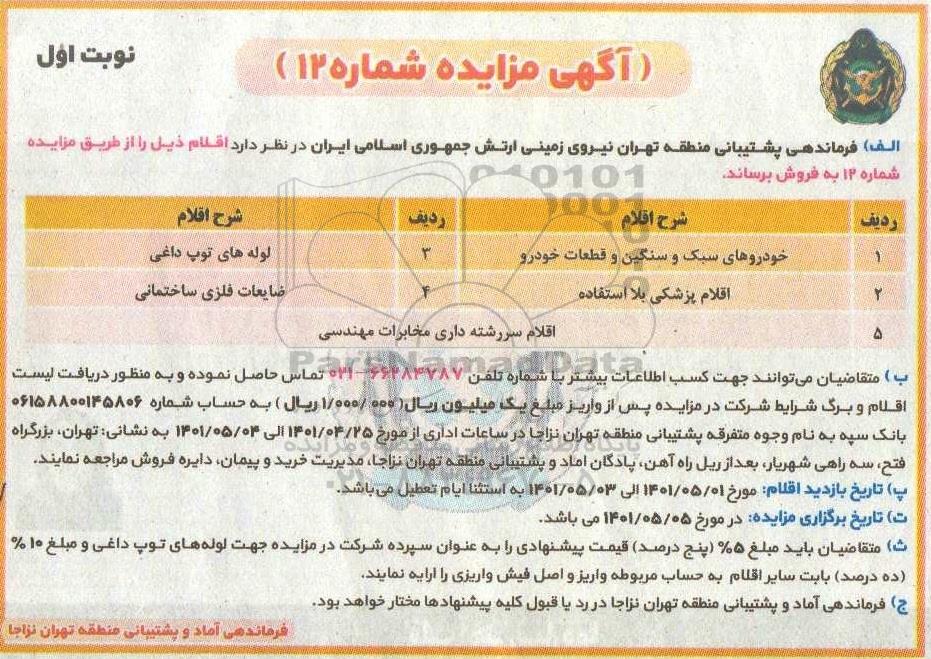 نوبت اول
( آگهی مزایده شماره ۱۲ )
الف) فرماندهی پشتیبانی منطقه تهران نیروی زمینی ارتش جمهوری اسلامی ایران در نظر دارد اقلام ذیل را از طریق مزایده
شماره ۱۲ به فروش برساند.
ردیف شرح اقلام ردیف شرح اقلام
۱ خودروهای سبک و سنگین و قطعات خودرو ۳ لوله های توپ داغی
۲ اقلام پزشکی بلا استفاده ۴ ضایعات فلزی ساختمانی
۵ اقلام سررشته داری مخابرات مهندسی
ParsNamadData
ب) متقاضیان می‌توانند جهت کسب اطلاعات بیشتر با شماره تلفن ۶۶۲۸۴۷۸۷-۰۲۱ تماس حاصل نموده و به منظور دریافت لیست
اقلام و برگ شرایط شرکت در مزایده پس از واریز مبلغ یک میلیون ریال( ۱/۰۰۰/۰۰۰ ریال ) به حساب شماره ۰۶۱۵۸۸۰۰۱۴۵۸۰۶
بانک سپه به نام وجوه متفرقه پشتیبانی منطقه تهران نزاجا در ساعات اداری از مورخ ۱۴۰۱/۰۴/۲۵ الی ۱۴۰۱/۰۵/۰۴ به نشانی: تهران، بزرگراه
فتح، سه راهی شهریار، بعداز ریل راه آهن، پادگان اماد و پشتیبانی منطقه تهران نزاجا، مدیریت خرید و پیمان، دایره فروش مراجعه نمایند.
پ) تاریخ بازدید اقلام: مورخ ۱۴۰۱/۰۵/۰۱ الی ۱۴۰۱/۰۵/۰۳ به استثنا ایام تعطیل می‌باشد.
ت) تاریخ برگزاری مزایده: در مورخ ۱۴۰۱/۰۵/۰۵ می باشد.
ث) متقاضیان باید مبلغ ۵% (پنج درصد) قیمت پیشنهادی را به عنوان سپرده شرکت در مزایده جهت لوله‌های توپ داغی و مبلغ ۱۰ %
(ده درصد) بابت سایر اقلام به حساب مربوطه واریز و اصل فیش واریزی را ارایه نمایند.
ج) فرماندهی آماد و پشتیبانی منطقه تهران نزاجا در رد یا قبول کلیه پیشنهادها مختار خواهد بود.
فرماندهی آماد و پشتیبانی منطقه تهران نزاجا